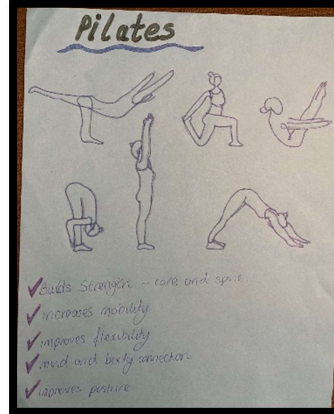 Pilates
✓ Builds Strength – core and spine
✓ increases mobility
✓ improves flexibility
✓ mind and body connection
✓ improves posture